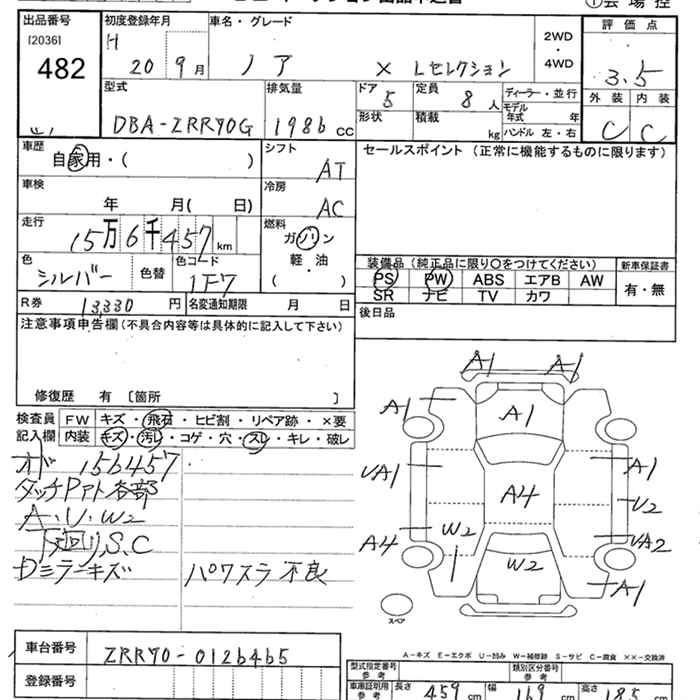 ①会場控
出品番号 初度登録年月 車名・グレード 2WD・4WD 評価点
[2036] H 20 9月 ノア X Lセレクション 3.5
482
型式 排気量 ドア 5 定員 8人 ディーラー・並行 外装 内装
DBA-ZRR70G 1986 CC 形状 積載 kg モデル年式 年 C C
ハンドル 左・右
車歴 自家用・( ) シフト AT セールスポイント (正常に機能するものに限ります)
車検 年 月( 日) 冷房 AC
走行 15万6千457km 燃料 ガソリン
軽・油
( )
色 シルバー 色替 色コード 1F7
装備品 (純正品に限り〇をつけてください) 新車保証書
PS PW ABS エアB AW 有・無
SR ナビ TV カワ
R券 13,330円 名変通知期限 月 日 後日品
注意事項申告欄(不具合内容等は具体的に記入して下さい)
修復歴 有 〔箇所 〕
検査員 FW キズ・飛石・ヒビ割・リペア跡・×要
記入欄 内装 キズ・汚レ・コゲ・穴・スレ・キレ・破レ
オド 156457
タッチPアト各部
A・U・W2
下廻りS.C
Dミラーキズ パワスラ不良
A1 A1
A1 A1
UA1 A1
A4 U2
A4 W2 UA2
W2 A1
スペア
車台番号 ZRR70-0126465
登録番号
A-キズ E-エクボ U-凹み W-補修跡 S-サビ C-腐食 ××-交換済
型式指定番号 参考 類別区分番号 参考
車庫証明用 参考 長さ 459cm 幅 169cm 高さ 185cm